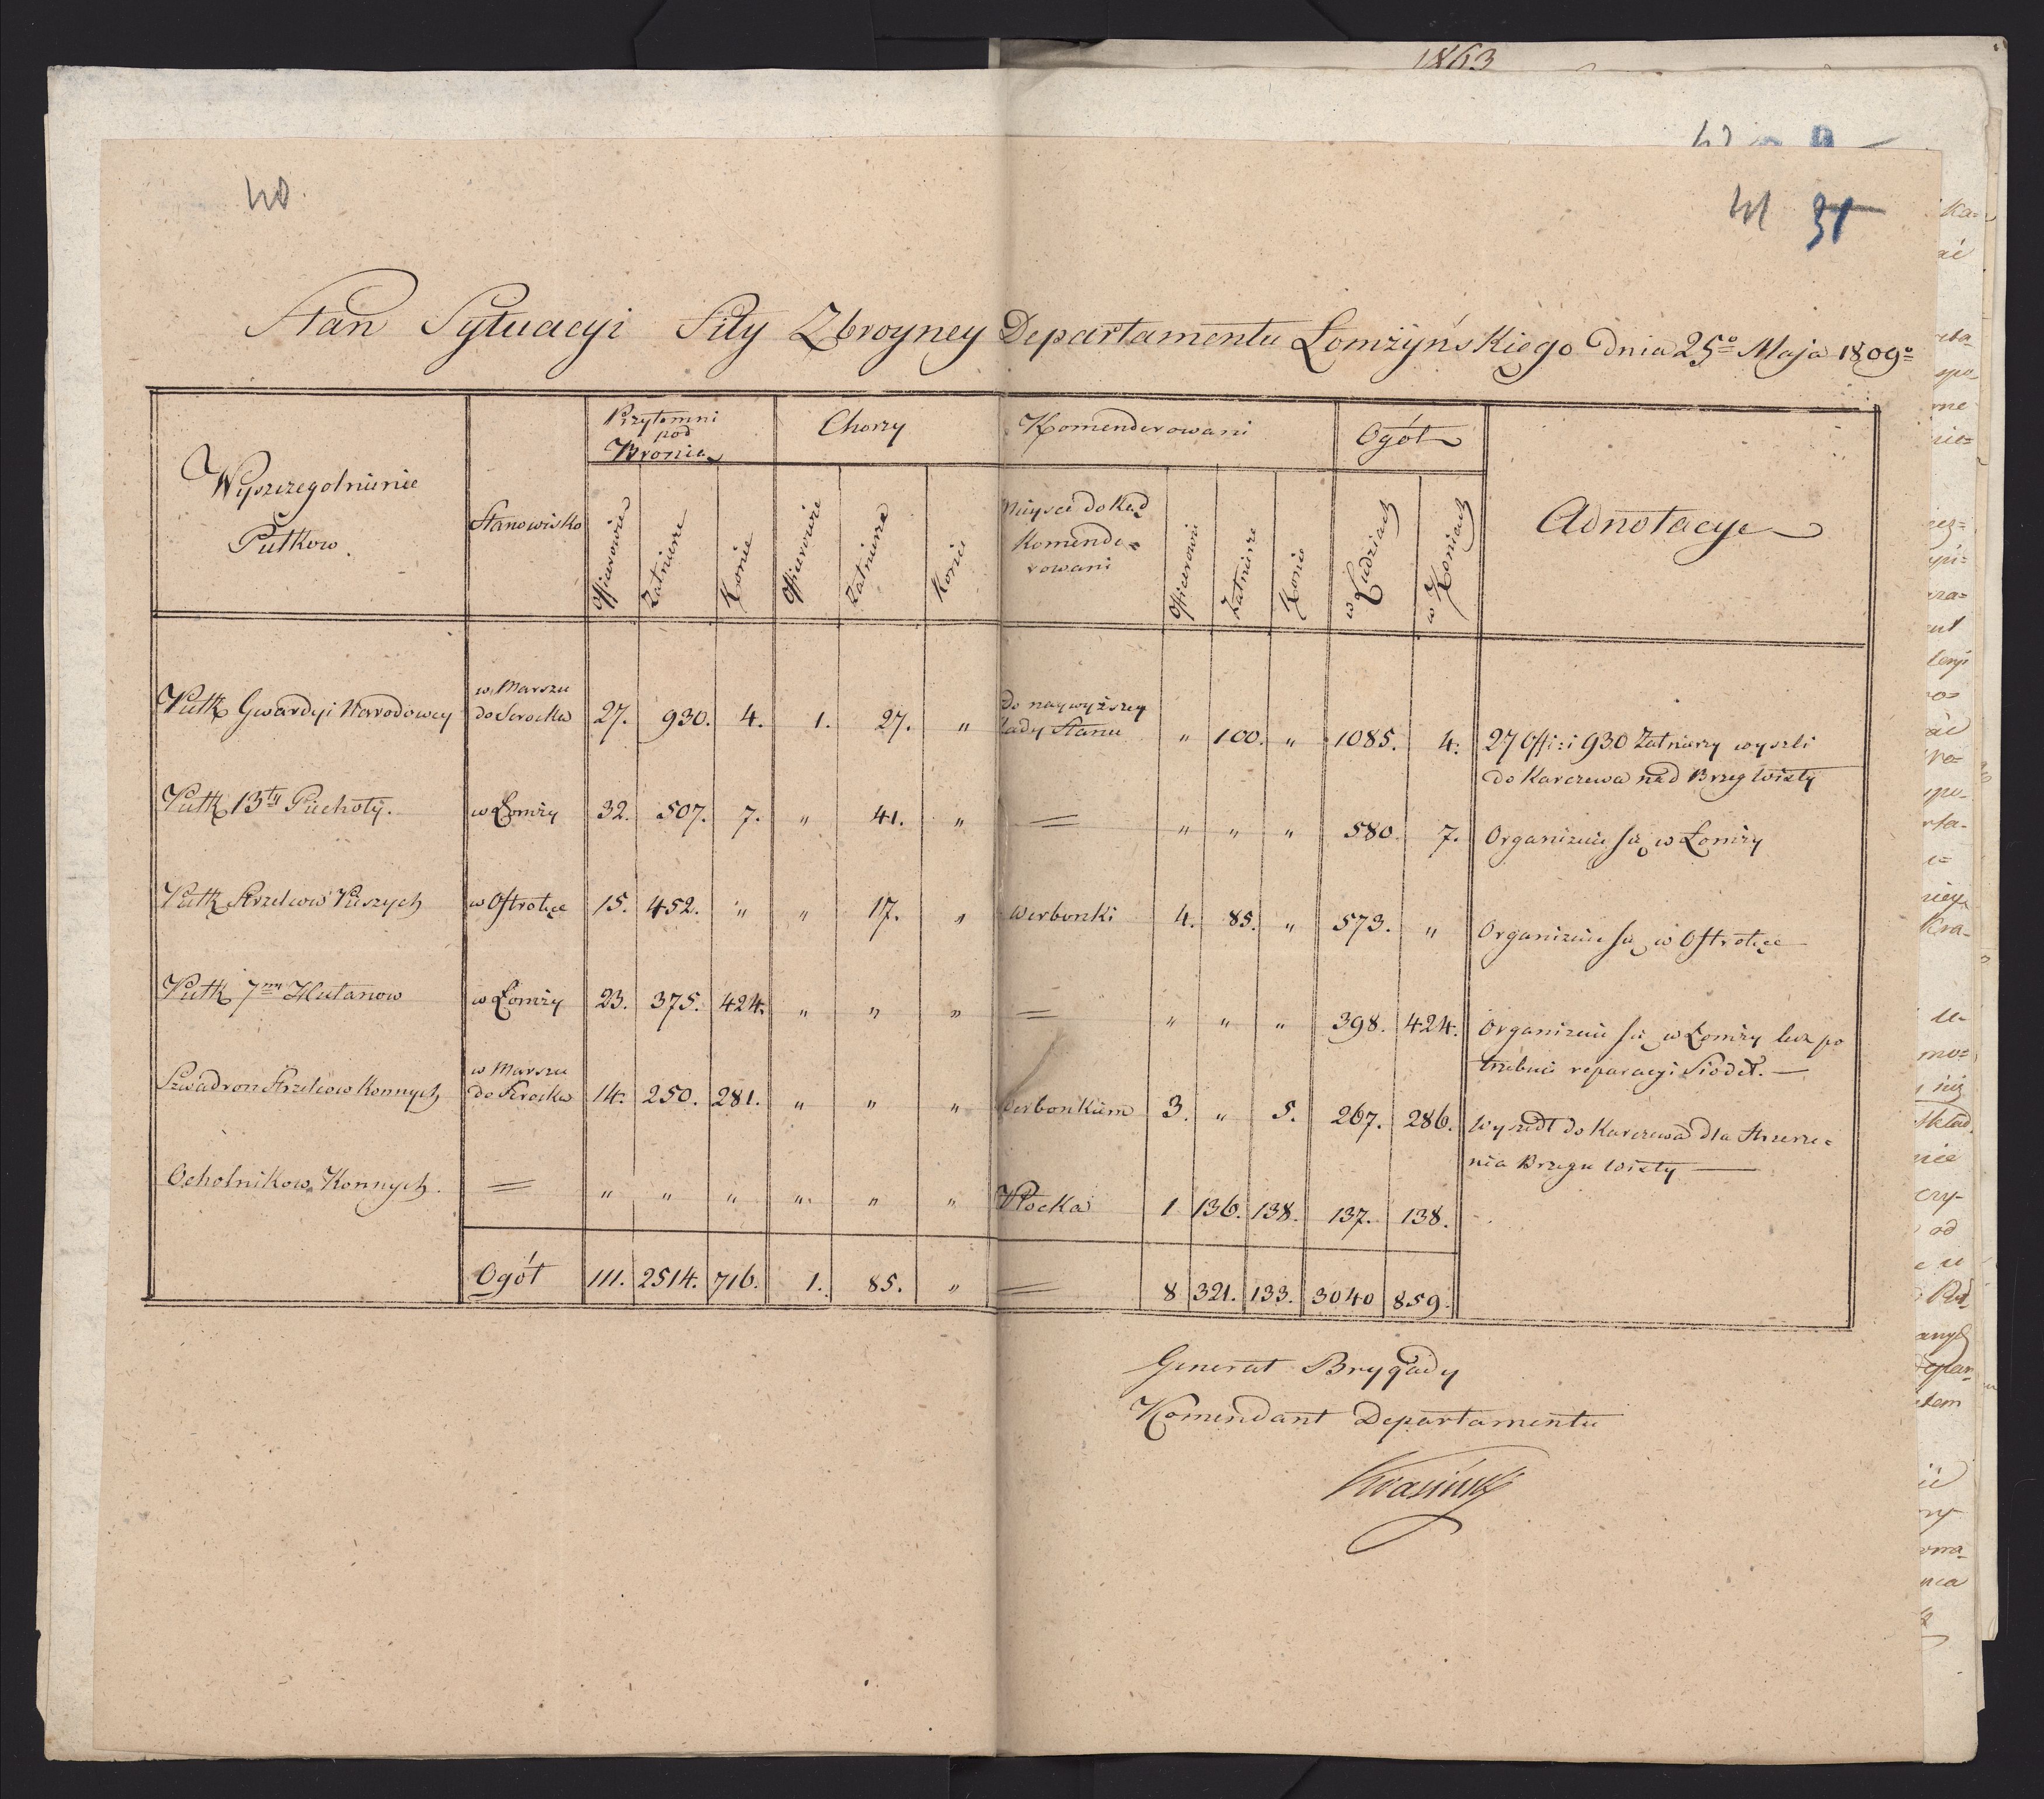 1863
40.
41 31
Stan Sytuacyi Siły Zbroyney Departamentu Łomżyńskiego dnia 25º Maja 1809º
Wyszczegolnienie Pułkow.
Stanowisko
Przytomni pod Bronią
Chorzy
Komenderowani
Ogół
Adnotacye
Officerowie
Żałnierze
Konie
Officerowie
Żałnierze
Konie
Mieysce dokąd
Komende=
rowani
Officerowie
Żałnierze
Konie
w Ludziach
w Koniach
Pułk Gwardyi Narodowey w Marszu do Serocka 27. 930. 4. 1. 27. " do naywyższey Rady Stanu " 100. " 1085. 4. 27 Offi: i 930 Żałnierzy wyszli
do Karczewa nad Brzeg Wisły
Pułk 13ty Piechoty. w Łomży 32. 507. 7. " 41. " = " " " 580. 7. Organizuie się w Łomży
Pułk Strzelcow Pieszych w Ostrołęce 15. 452. " " 17. " Werbonki 4. 85. " 573. " Organizuie się w Ostrołęce
Pułk 7my Hułanow w Łomży 23. 375. 424. " " " = " " " 398. 424. Organizuie się w Łomży lecz po
trzebuie reparacyi Siodeł. —
Szwadron Strzelcow Konnych w Marszu do Serocka 14. 250. 281. " " " Werbonkiem 3. " 5. 267. 286. Wyszedł do Karczewa dla Strzeże=
nia Brzegu Wisły —
Ochotnikow Konnych. = " " " " " " Płocka 1 136. 138. 137. 138.
Ogół 111. 2514. 716. 1. 85. " = 8 321. 133. 3040 859.
Generał Brygady
Komendant Departamentu
Krasiński